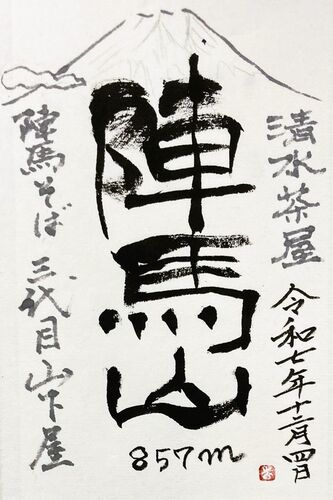 清水茶屋
令和七年十二月四日
陣馬山
857m
陣馬そば 三代目山下屋